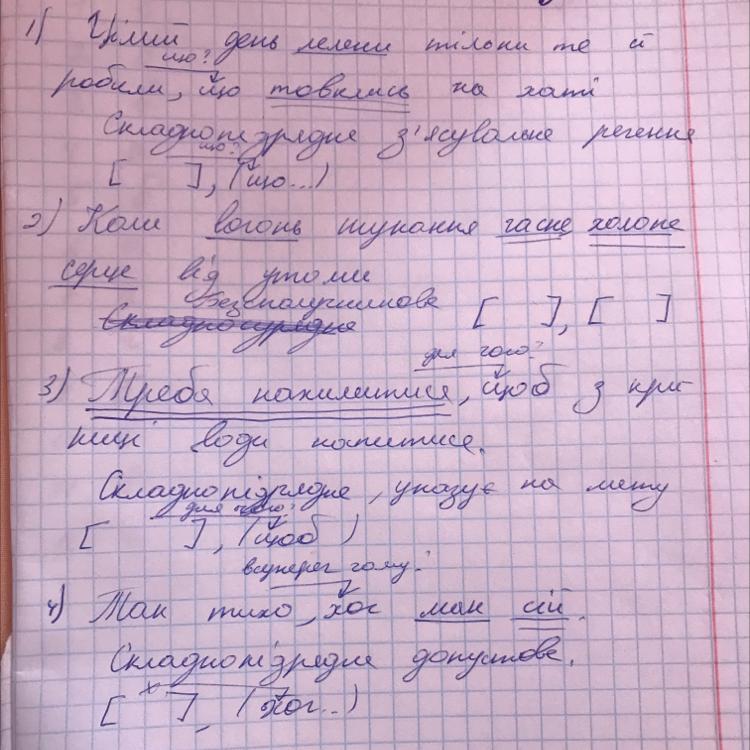 1) Цілий день лелеки тільки те й
що?
робили, що товклись на хаті
Складнопідрядне з'ясувальне речення
що?
[ ], (що...)
2) Коли вогонь шукання гасне холоне
серце від утоми
Безсполучникове [ ], [ ]
Складносурядне
для чого?
3) Треба нахилитися, щоб з кри
ниці води напитися.
Складнопідрядне, указує на мету
для чого?
[ ], (щоб )
всупереч чому?
4) Так тихо, хоч мак сій.
Складнопідрядне допустове.
[ х ], (хоч..)